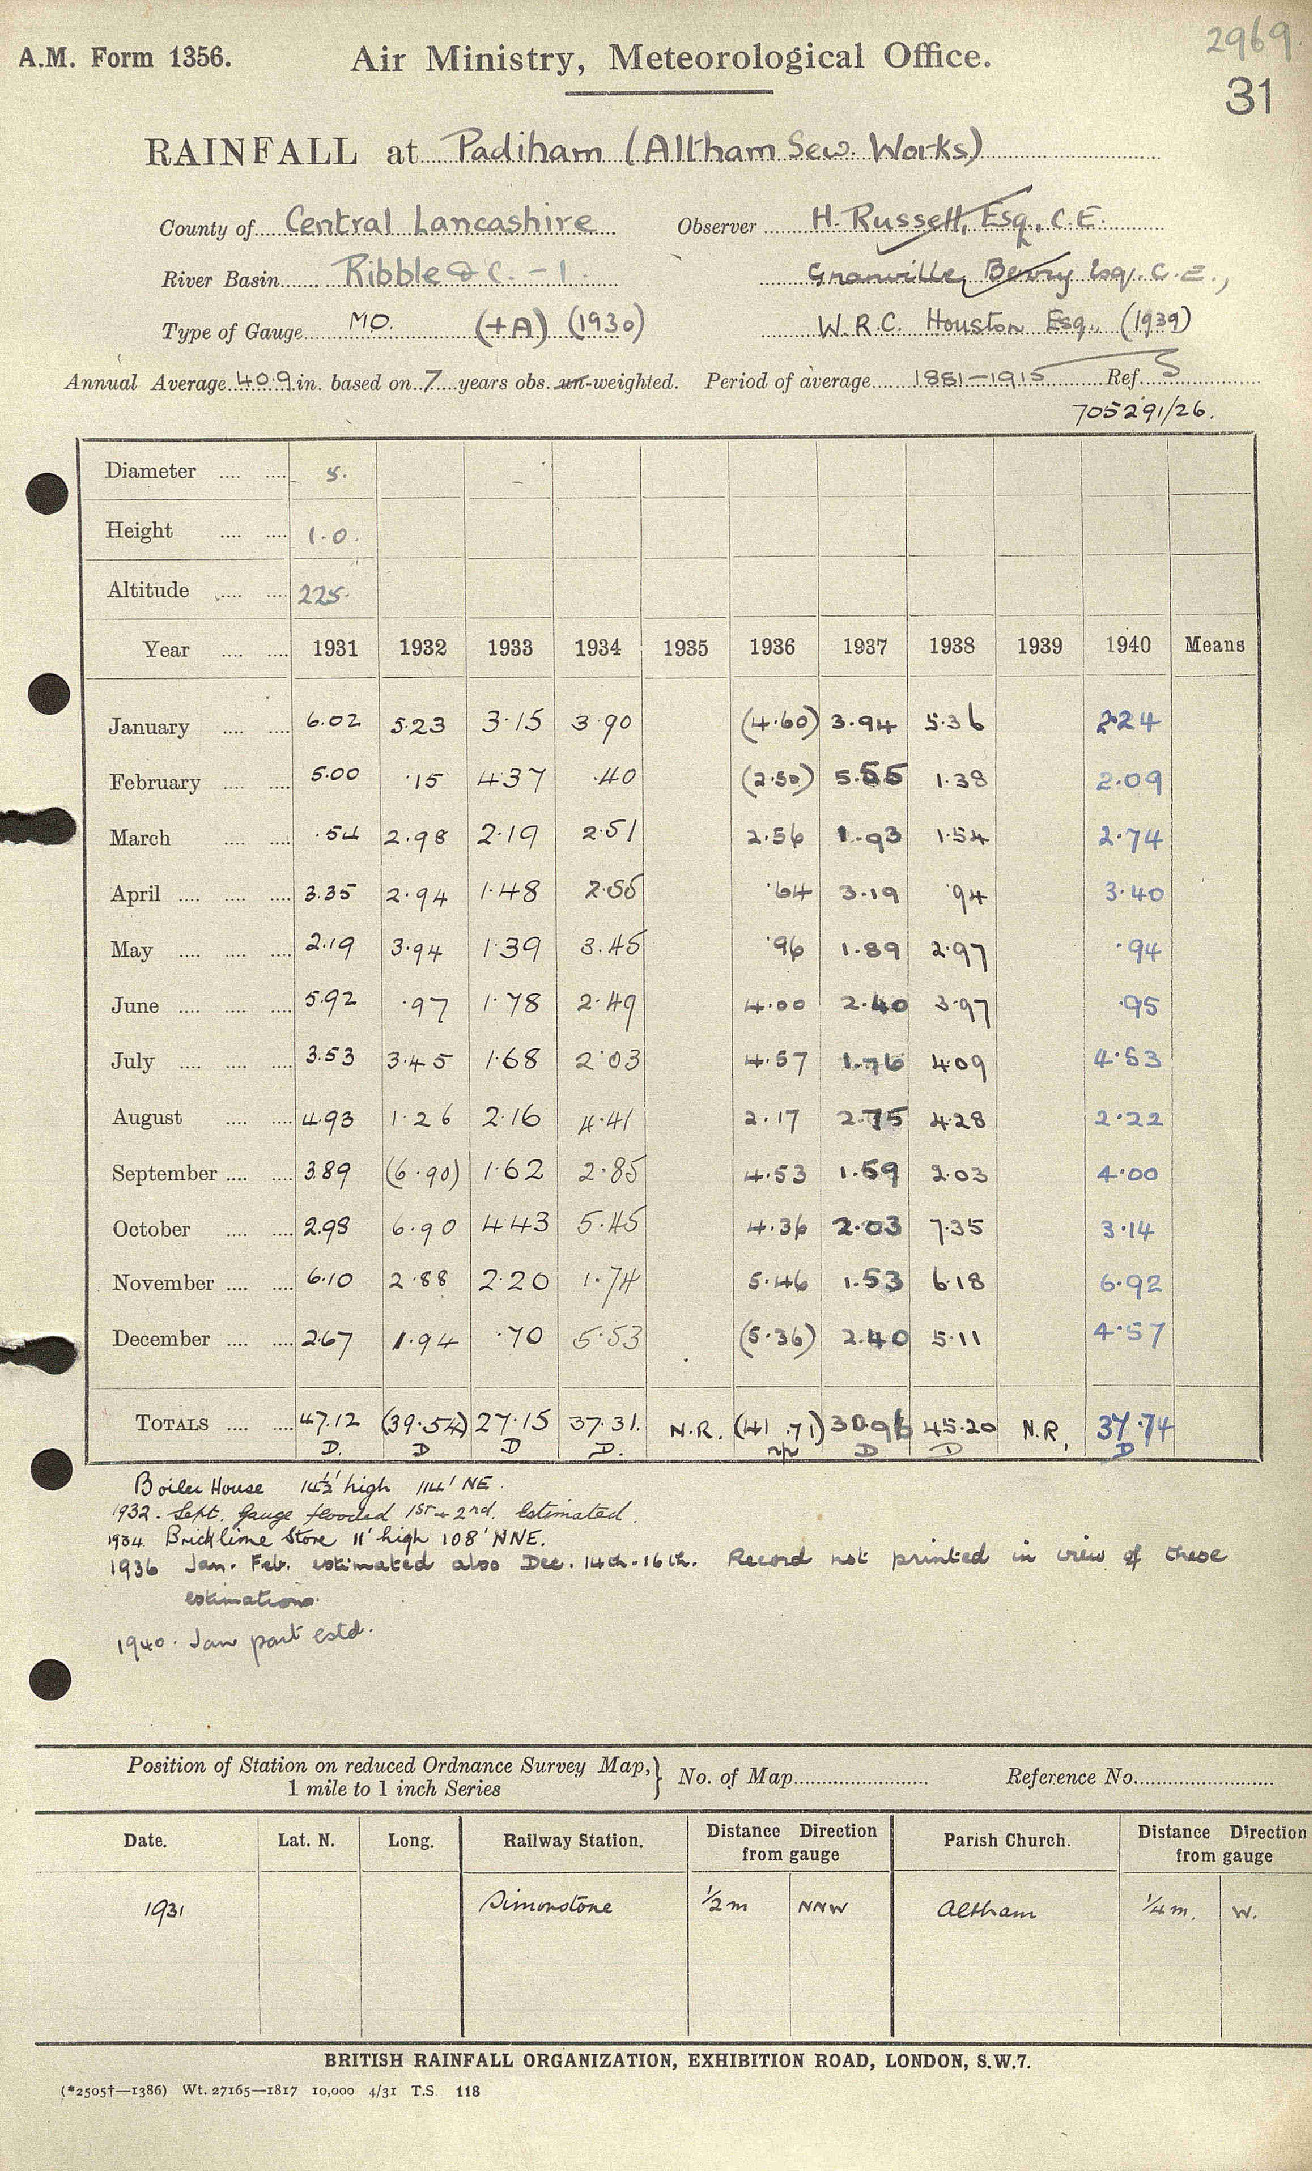 2969.
31
A.M. Form 1356.
Air Ministry, Meteorological Office.
RAINFALL at Padiham (Altham Sew. Works)
County of Central Lancashire Observer H. Russett, Esq., C.E.
River Basin Ribble &c. - 1. Granville Berry Esq. C.E.,
Type of Gauge MO. (+A) (1930) W.R.C. Houston Esq. (1939)
Annual Average 40.9 in. based on 7 years obs. un-weighted. Period of average 1881-1915 Ref. S
705291/26.
Diameter 5.
Height 1.0.
Altitude 225
Year 1931 1932 1933 1934 1935 1936 1937 1938 1939 1940 Means
January 6.02 5.23 3.15 3.90 (4.60) 3.94 5.36 2.24
February 5.00 .15 4.37 .40 (2.50) 5.55 1.38 2.09
March .54 2.98 2.19 2.51 2.56 1.93 1.54 2.74
April 3.35 2.94 1.48 2.55 .64 3.19 .94 3.40
May 2.19 3.94 1.39 3.45 .96 1.89 2.97 .94
June 5.92 .97 1.78 2.49 4.00 2.40 3.97 .95
July 3.53 3.45 1.68 2.03 4.57 1.76 4.09 4.53
August 4.93 1.26 2.16 4.41 2.17 2.75 4.28 2.22
September 3.89 (6.90) 1.62 2.85 4.53 1.59 2.03 4.00
October 2.98 6.90 4.43 5.45 4.36 2.03 7.35 3.14
November 6.10 2.88 2.20 1.74 5.46 1.53 6.18 6.92
December 2.67 1.94 .70 5.53 (5.36) 2.40 5.11 4.57
TOTALS 47.12 (39.54) 27.15 37.31. N.R. (41.71) 30.96 45.20 N.R. 37.74
D. D D D. D D D
Boiler House 14½' high 114' NE.
1932. Sept. Gauge flooded 1st + 2nd. Estimated.
1934. Brick lime Store 11' high 108' NNE.
1936 Jan. Feb. estimated also Dec. 14th-16th. Record not printed in view of these
estimations.
1940. Jan part estd.
Position of Station on reduced Ordnance Survey Map, 1 mile to 1 inch Series } No. of Map Reference No.
Date. Lat. N. Long. Railway Station. Distance Direction from gauge Parish Church. Distance Direction from gauge
1931 Simonstone ½ m NNW Altham ¼ m. W.
BRITISH RAINFALL ORGANIZATION, EXHIBITION ROAD, LONDON, S.W.7.
(*2505†—1386) Wt. 27165—1817 10,000 4/31 T.S. 118